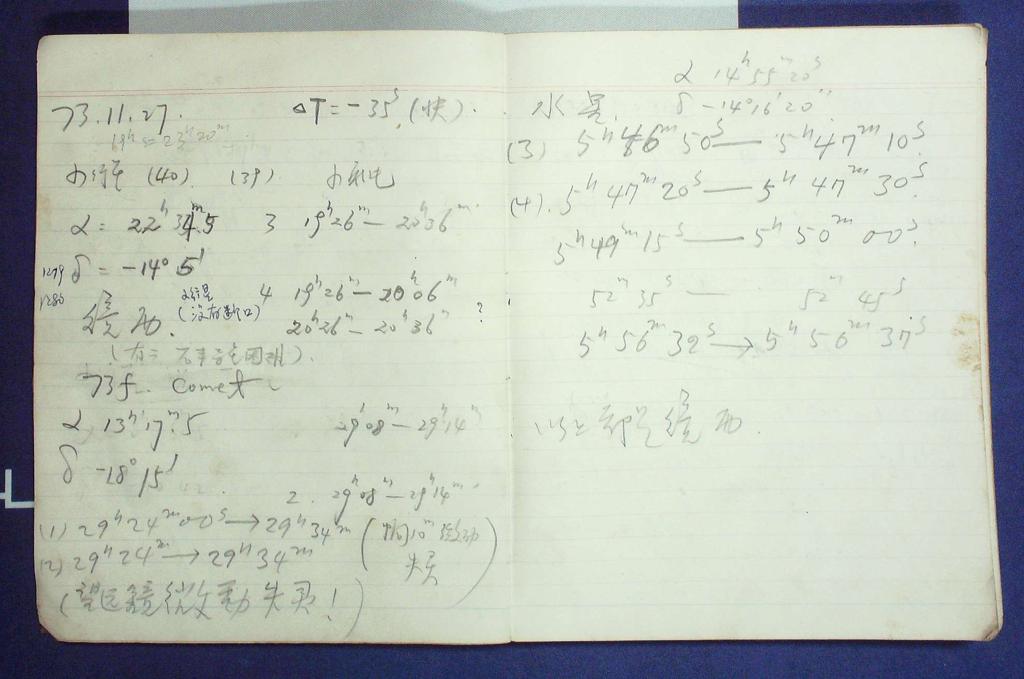 73.11.27. ΔT = -35ˢ (快).
19ʰ = 23ʰ20ᵐ
小行星 (40) (39)
α = 22ʰ34.5 3 19ʰ26ᵐ — 20ʰ36ᵐ
1279 δ = -14° 5'
1280
4 19ʰ26ᵐ — 20ʰ06ᵐ
镜西. (没有断口) 20ʰ26ᵐ — 20ʰ36ᵐ ?
73f. Comet
α 13ʰ17ᵐ.5 29ʰ08 — 29ʰ14ᵐ
δ -18°15'
2. 29ʰ08ᵐ — 29ʰ14ᵐ
(1) 29ʰ24ᵐ00ˢ → 29ʰ34ᵐ
(2) 29ʰ24ᵐ → 29ʰ34ᵐ
(中间10ᵐ微动失灵)
(望远镜微動失灵!)
α 14ʰ55ᵐ20ˢ
水星. δ -14°16'20"
(3) 5ʰ46ᵐ50ˢ — 5ʰ47ᵐ10ˢ
(4). 5ʰ47ᵐ20ˢ — 5ʰ47ᵐ30ˢ
5ʰ49ᵐ15ˢ — 5ʰ50ᵐ00ˢ.
52ᵐ35ˢ — 52ᵐ45ˢ
5ʰ56ᵐ32ˢ → 5ʰ56ᵐ37ˢ
以上都是镜西.